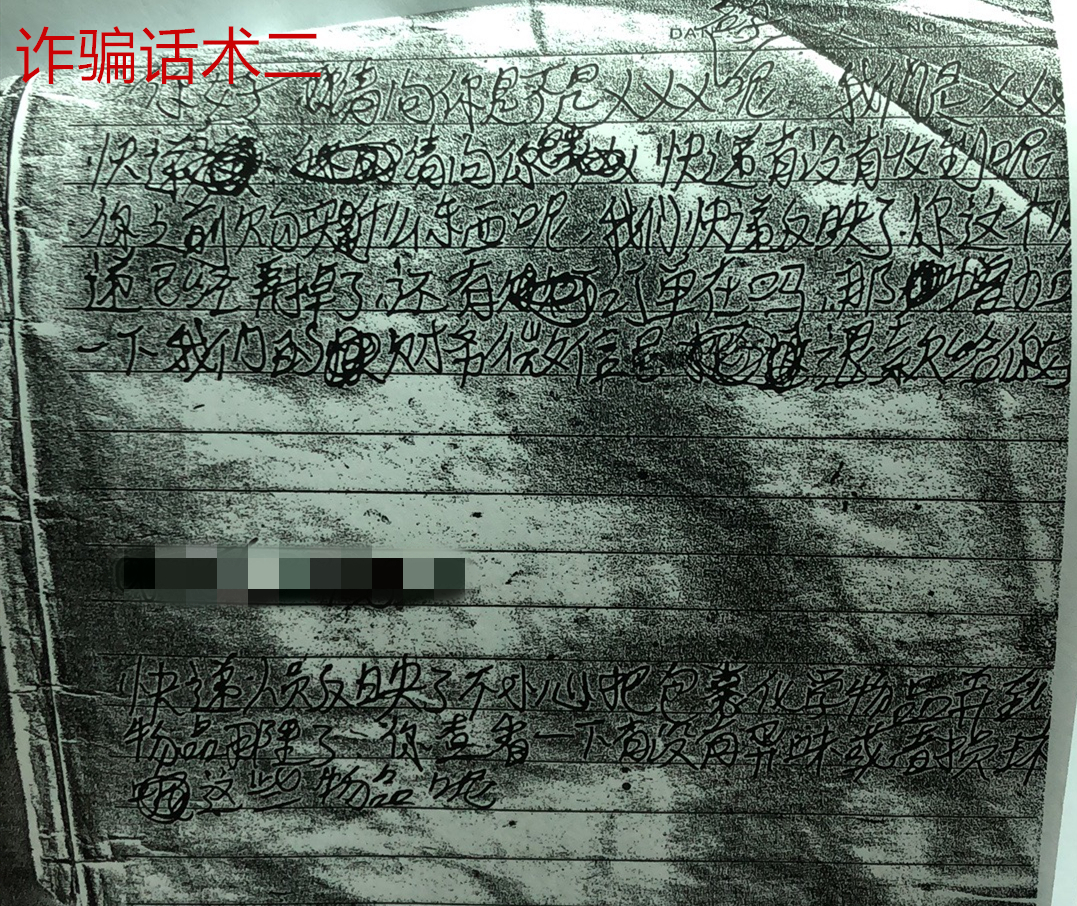 诈骗话术二
DATE NO.
你好 请问你是不是XXX呢、我们是XXX
快递 请问你 快递有没有收到呢
你之前次购买 什么东西呢、我们快递反映了你这个
递已经弄掉了、还有 订单在吗、那 增加
一下我们的 财务微信 退款给你
快递人员反映了不小心把包裹化学物品弄到
物品那里了、你查看一下有没有异味或者损坏
这些物品呢